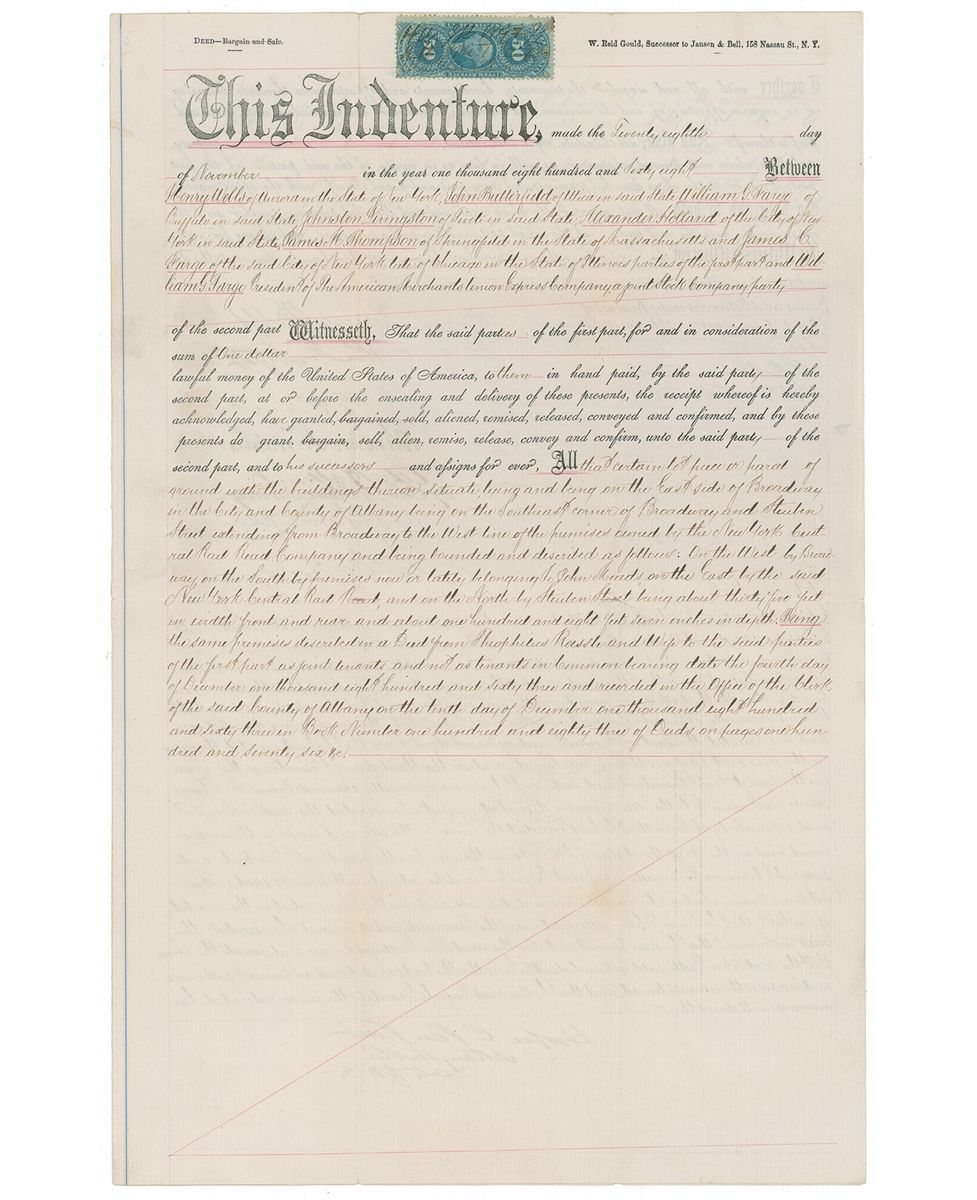 DEED—Bargain and Sale.
W. Reid Gould, Successor to Jansen & Bell, 158 Nassau St., N. Y.
50 50
This Indenture, made the Twenty eighth day
of November in the year one thousand eight hundred and Sixty eight Between
Henry Wells of Aurora in the State of New York, John Butterfield of Utica in said State William G. Fargo of
Buffalo in said State, Johnston Livingston of Tivoli in said State, Alexander Holland of the City of New
York in said State, James M. Thompson of Springfield in the State of Massachusetts and James C.
Fargo of the said City of New York late of Chicago in the State of Illinois parties of the first part and Wil
liam G. Fargo President of The American Merchants Union Express Company a joint Stock Company party
of the second part Witnesseth, That the said parties of the first part, for and in consideration of the
sum of One dollar
lawful money of the United States of America, to them in hand paid, by the said party of the
second part, at or before the ensealing and delivery of these presents, the receipt whereof is hereby
acknowledged, have granted, bargained, sold, aliened, remised, released, conveyed and confirmed, and by these
presents do grant, bargain, sell, alien, remise, release, convey and confirm, unto the said party of the
second part, and to his successors and assigns for ever, All that certain lot piece or parcel of
ground with the buildings thereon situate lying and being on the East side of Broadway
in the City and County of Albany being on the Southeast corner of Broadway and Steuben
Street extending from Broadway to the West line of the premises owned by the New York Cent
ral Rail Road Company and being bounded and described as follows: On the West by Broad-
way on the South by premises now or lately belonging to John Meads, on the East by the said
New York Central Rail Road, and on the North by Steuben Street being about thirty five feet
in width front and rear and about one hundred and eight feet seven inches in depth. Being
the same premises described in a Deed from Theophilus Roessle and Wife to the said parties
of the first part as joint tenants and not as tenants in Common bearing date the fourth day
of December one thousand eight hundred and sixty three and recorded in the Office of the Clerk
of the said County of Albany on the tenth day of December one thousand eight hundred
and sixty three in Book Number one hundred and eighty three of Deeds on pages one hun-
dred and seventy six &c: